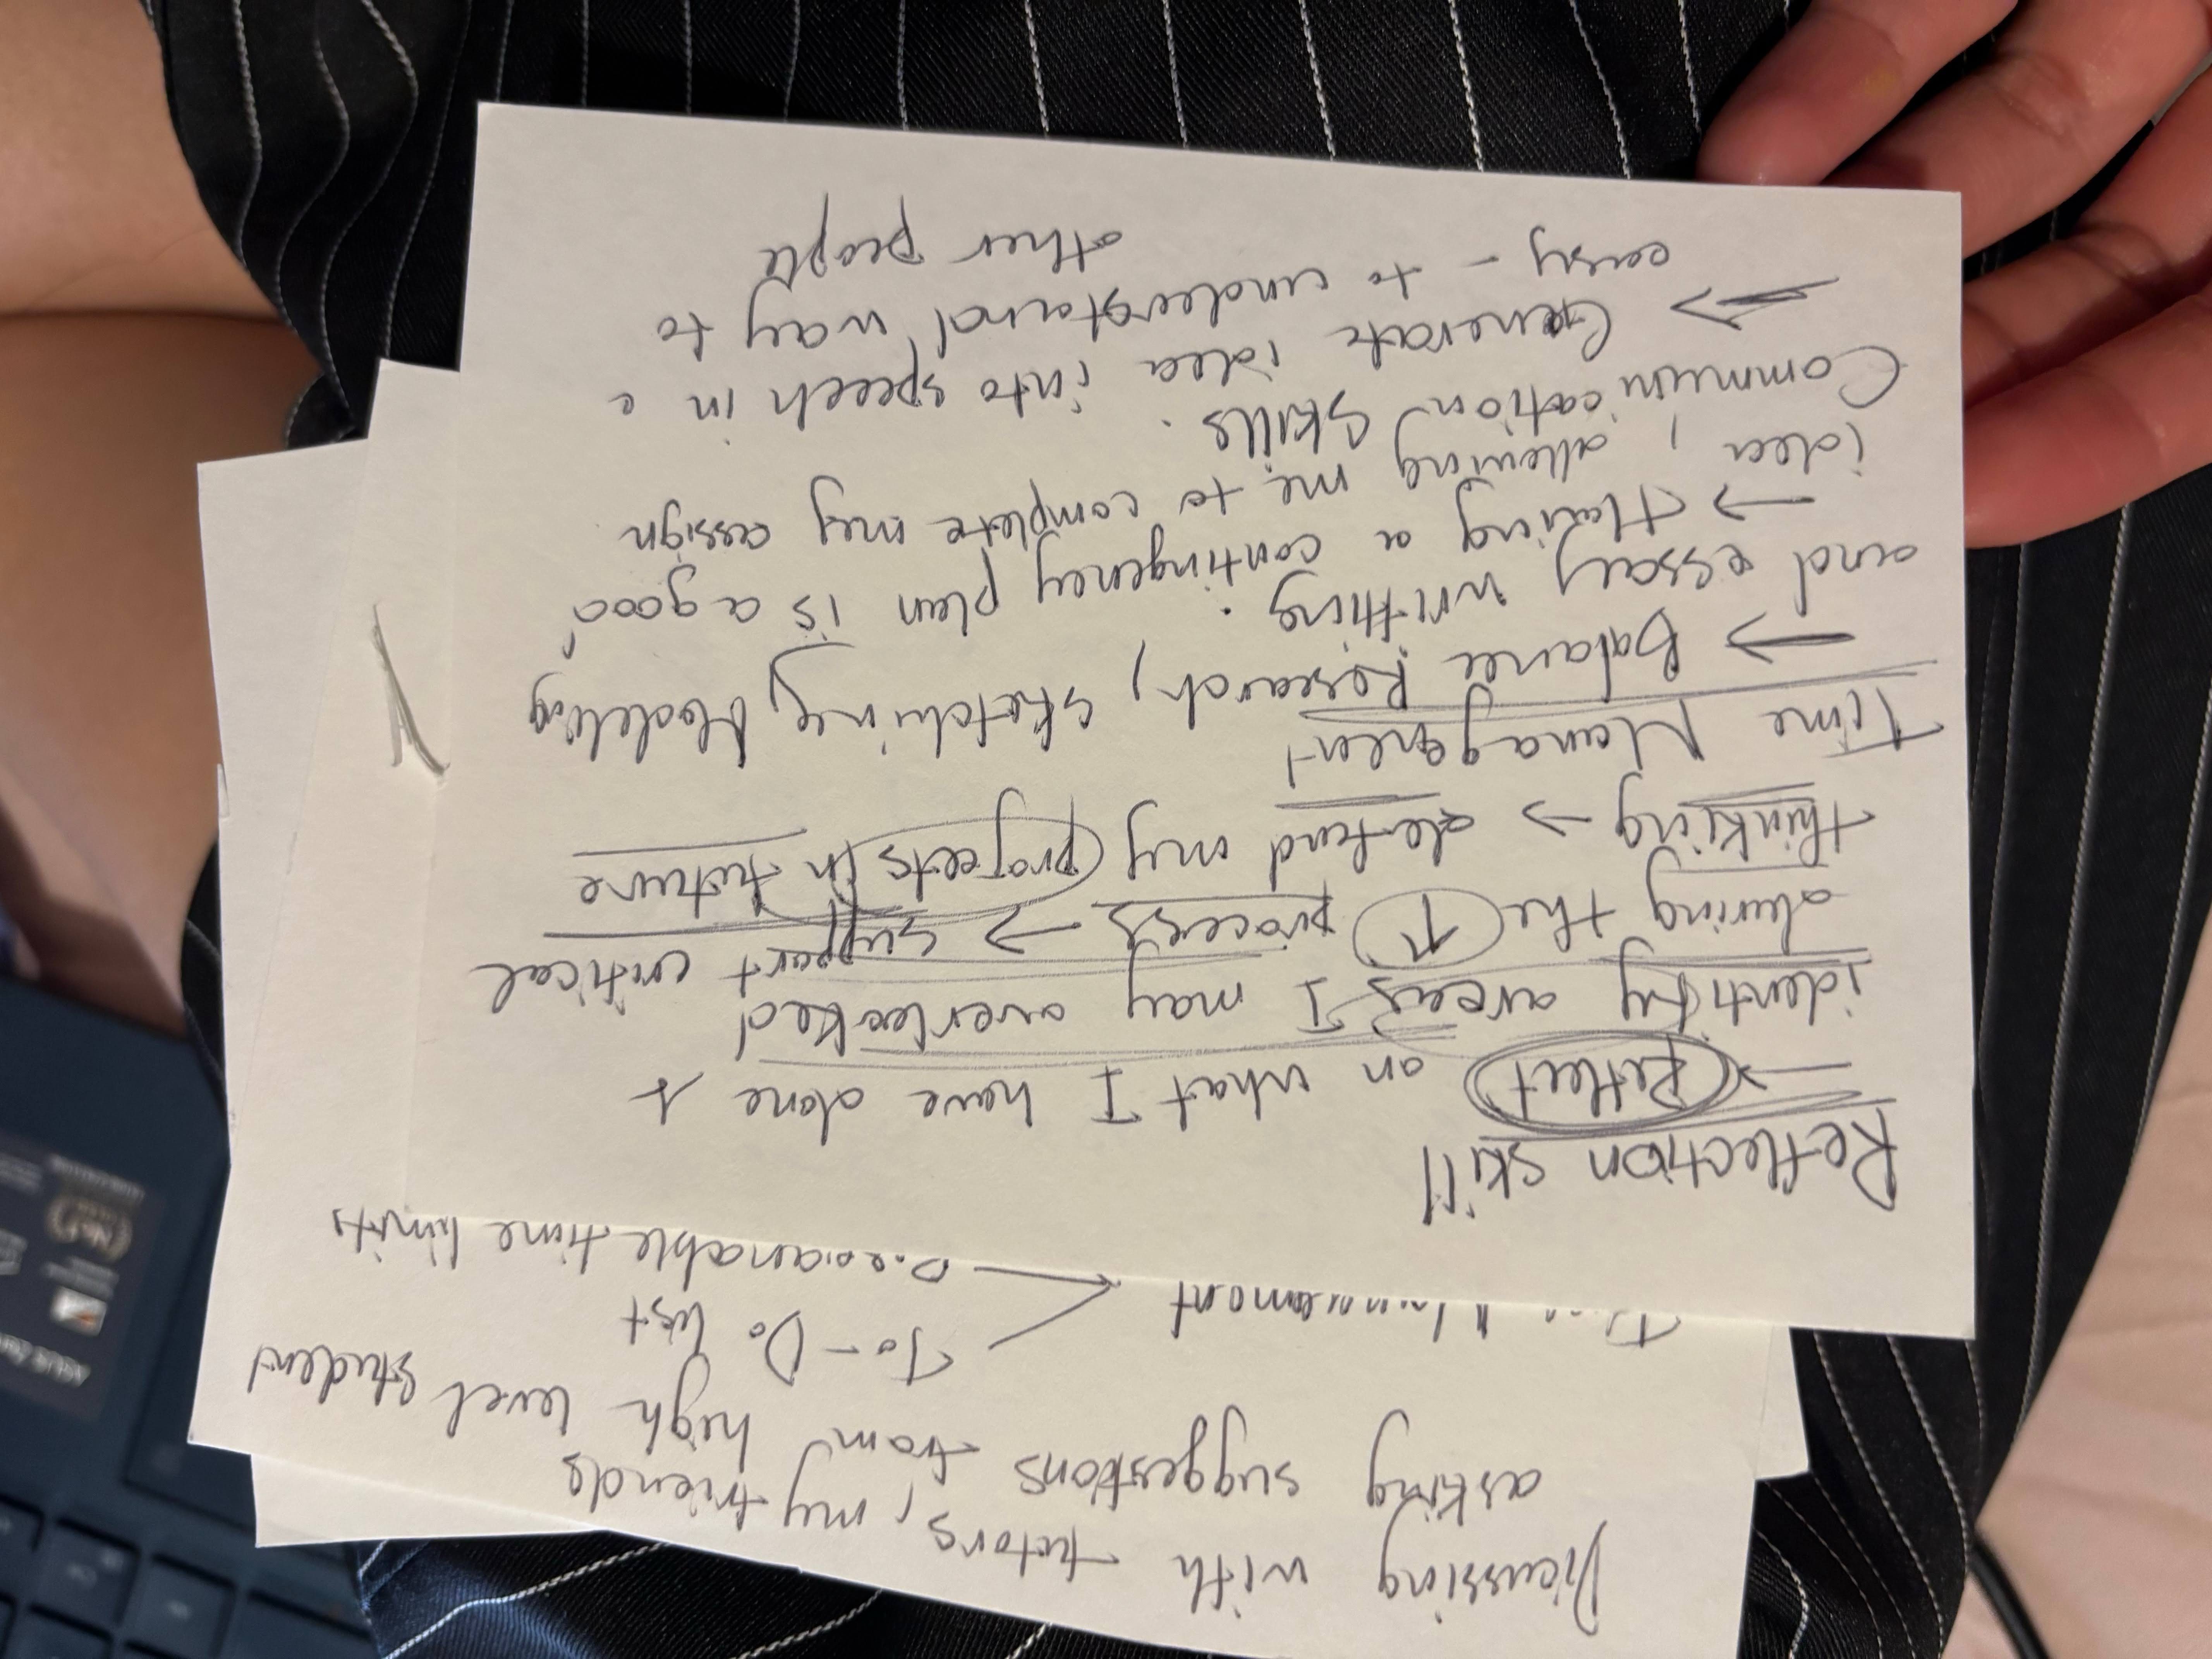 Discussing with tutors, my friends
asking suggestions from high level student
To-Do list
Time Management
Reasonable time limits
Reflection skill
→ Reflect on what I have done &
identify areas I may overlooked
during the ↑ process → support critical
thinking → defend my projects in future
Time Management
→ Balance Research, sketching, Modeling
and essay writing.
→ Having a contingency plan is a good
idea, allowing me to complete my assign
Communication skills.
⇒ Generate idea into speech in
easy - to understand way to
other people